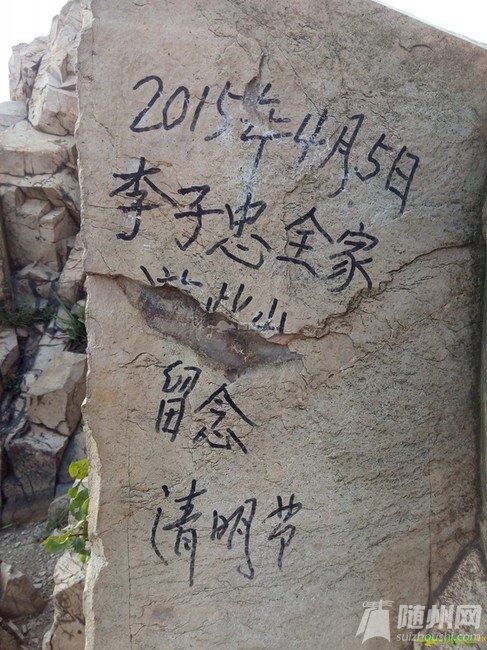 2015年4月5日
李子忠全家
游此山
留念
清明节
随州网
suizhoushi.com